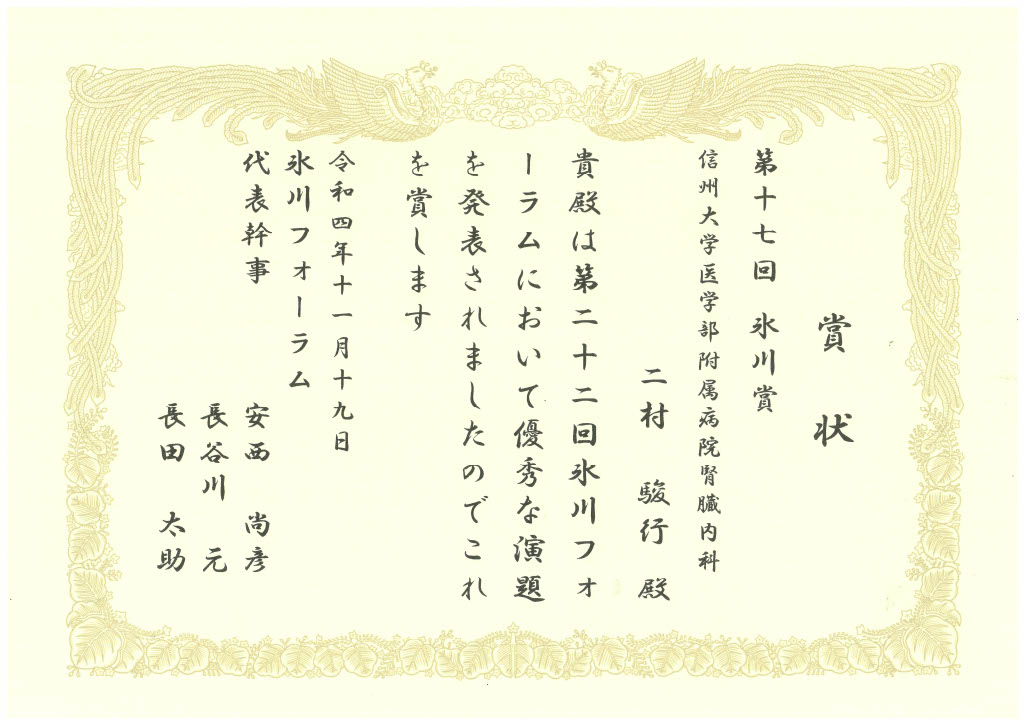 賞状
第十七回 氷川賞
信州大学医学部附属病院腎臓内科
二村 駿行 殿
貴殿は第二十二回氷川フォ
ーラムにおいて優秀な演題
を発表されましたのでこれ
を賞します
令和四年十一月十九日
氷川フォーラム
代表幹事 安西 尚彦
長谷川 元
長田 太助